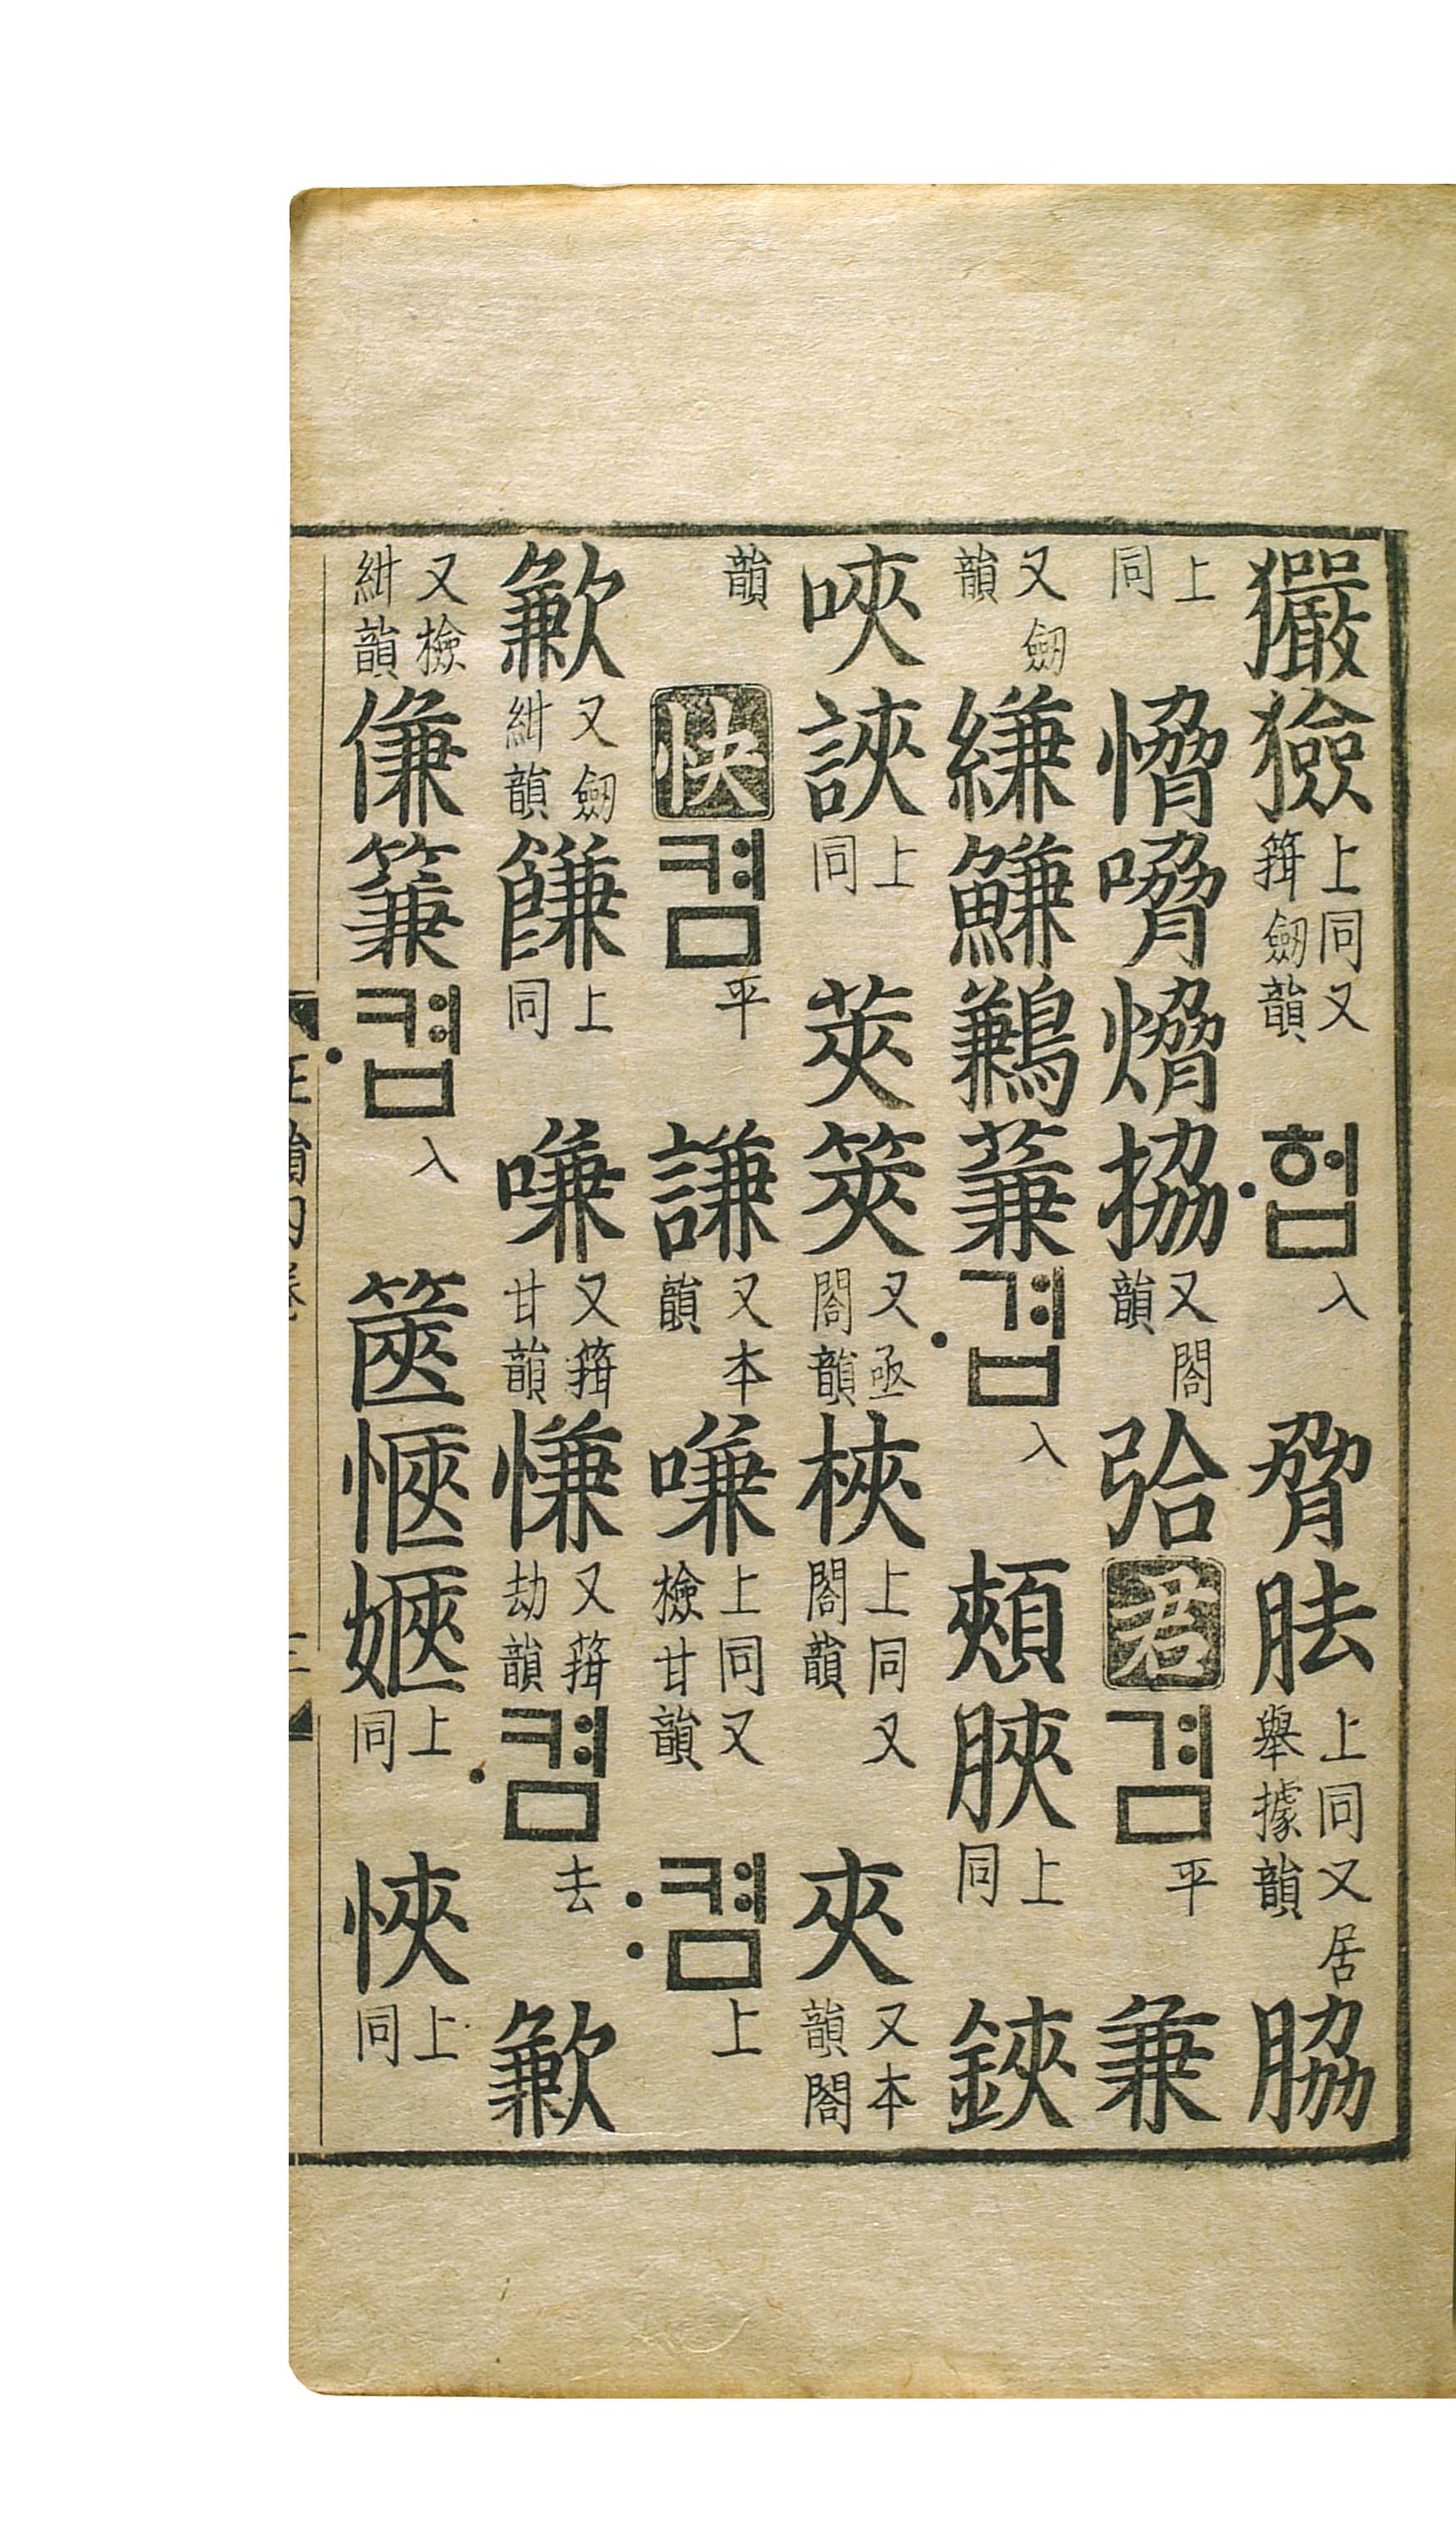 玁獫上同又箝劒韻·헙入脅胠上同又居擧據韻脇
上同愶嗋熁拹又閤韻君겸平兼
又劒韻縑鰜鶼蒹·겹入頰脥上同鋏
唊䛟上同莢筴又亟閤韻梜上同又閤韻夾又本韻閤
韻快켬平謙又本韻嗛上同又檢甘韻:켬上
歉又劒紺韻䭑上同嗛又箝甘韻慊又箝劫韻·켬去歉
又檢紺韻傔䈴·켭入篋愜上同悏上同